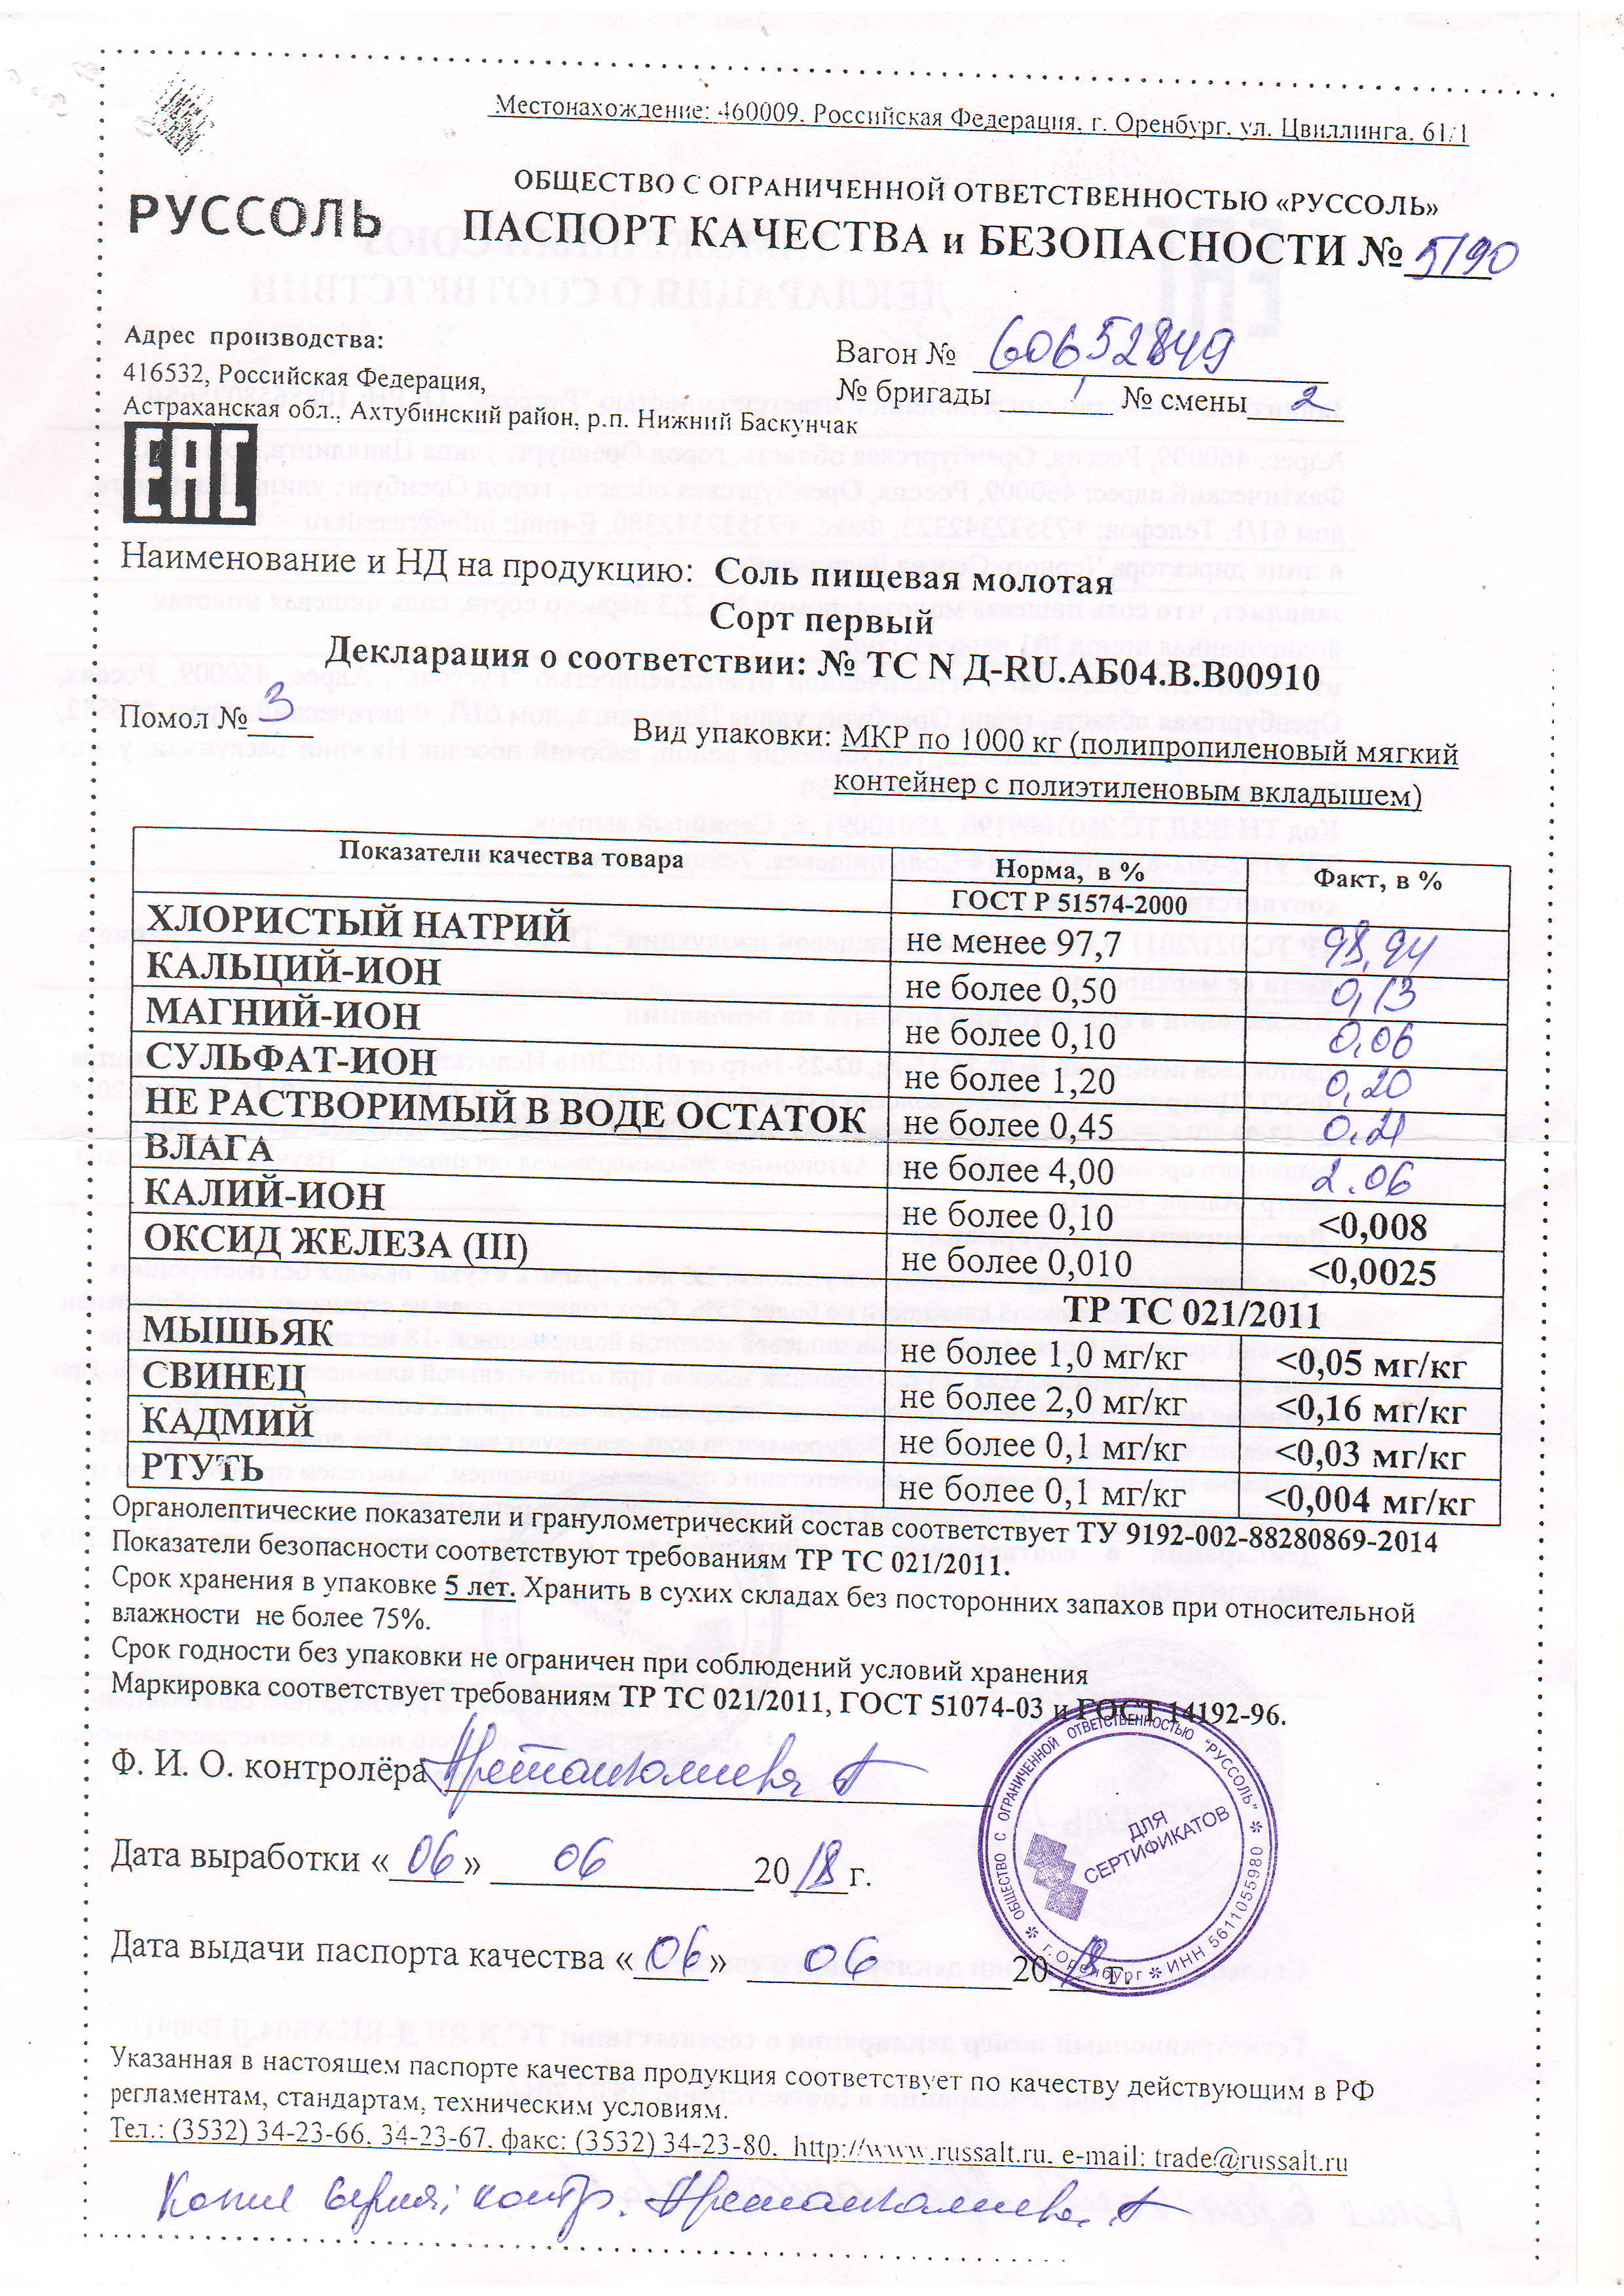 Местонахождение: 460009, Российская Федерация, г. Оренбург, ул. Цвиллинга, 61/1
РУССОЛЬ
ОБЩЕСТВО С ОГРАНИЧЕННОЙ ОТВЕТСТВЕННОСТЬЮ «РУССОЛЬ»
ПАСПОРТ КАЧЕСТВА и БЕЗОПАСНОСТИ № 5190
Адрес производства:
416532, Российская Федерация,
Астраханская обл., Ахтубинский район, р.п. Нижний Баскунчак
Вагон № 60652849
№ бригады 1 № смены 2
EAC
Наименование и НД на продукцию: Соль пищевая молотая
Сорт первый
Декларация о соответствии: № ТС N Д-RU.АБ04.В.В00910
Помол № 3
Вид упаковки: МКР по 1000 кг (полипропиленовый мягкий
контейнер с полиэтиленовым вкладышем)
Показатели качества товара Норма, в % Факт, в %
ГОСТ Р 51574-2000
ХЛОРИСТЫЙ НАТРИЙ не менее 97,7 98,94
КАЛЬЦИЙ-ИОН не более 0,50 0,13
МАГНИЙ-ИОН не более 0,10 0,06
СУЛЬФАТ-ИОН не более 1,20 0,20
НЕ РАСТВОРИМЫЙ В ВОДЕ ОСТАТОК не более 0,45 0,21
ВЛАГА не более 4,00 2.06
КАЛИЙ-ИОН не более 0,10 <0,008
ОКСИД ЖЕЛЕЗА (III) не более 0,010 <0,0025
ТР ТС 021/2011
МЫШЬЯК не более 1,0 мг/кг <0,05 мг/кг
СВИНЕЦ не более 2,0 мг/кг <0,16 мг/кг
КАДМИЙ не более 0,1 мг/кг <0,03 мг/кг
РТУТЬ не более 0,1 мг/кг <0,004 мг/кг
Органолептические показатели и гранулометрический состав соответствует ТУ 9192-002-88280869-2014
Показатели безопасности соответствуют требованиям ТР ТС 021/2011.
Срок хранения в упаковке 5 лет. Хранить в сухих складах без посторонних запахов при относительной
влажности не более 75%.
Срок годности без упаковки не ограничен при соблюдений условий хранения
Маркировка соответствует требованиям ТР ТС 021/2011, ГОСТ 51074-03 и ГОСТ 14192-96.
Ф. И. О. контролёра
ОБЩЕСТВО С ОГРАНИЧЕННОЙ ОТВЕТСТВЕННОСТЬЮ "РУССОЛЬ"
ДЛЯ
СЕРТИФИКАТОВ
г. Оренбург * ИНН 5611055980
Дата выработки «06» 06 2018 г.
Дата выдачи паспорта качества «06» 06 2018 г.
Указанная в настоящем паспорте качества продукция соответствует по качеству действующим в РФ
регламентам, стандартам, техническим условиям.
Тел.: (3532) 34-23-66, 34-23-67, факс: (3532) 34-23-80, http://www.russalt.ru, e-mail: trade@russalt.ru
Копия верна; контр.